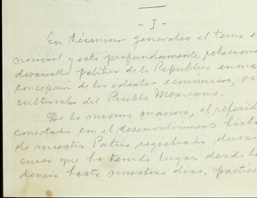 - I -
En términos generales el tema e
nacional y está profundamente relaciona
desarrollo político de la República inma
concepción de los ideales económicos, 
culturales del Pueblo Mexicano.
De la misma manera, el referid
conectado con el desenvolvimiento his
de nuestra Patria registrado, duran
que ha tenido lugar desde la
dencia hasta nuestros días,